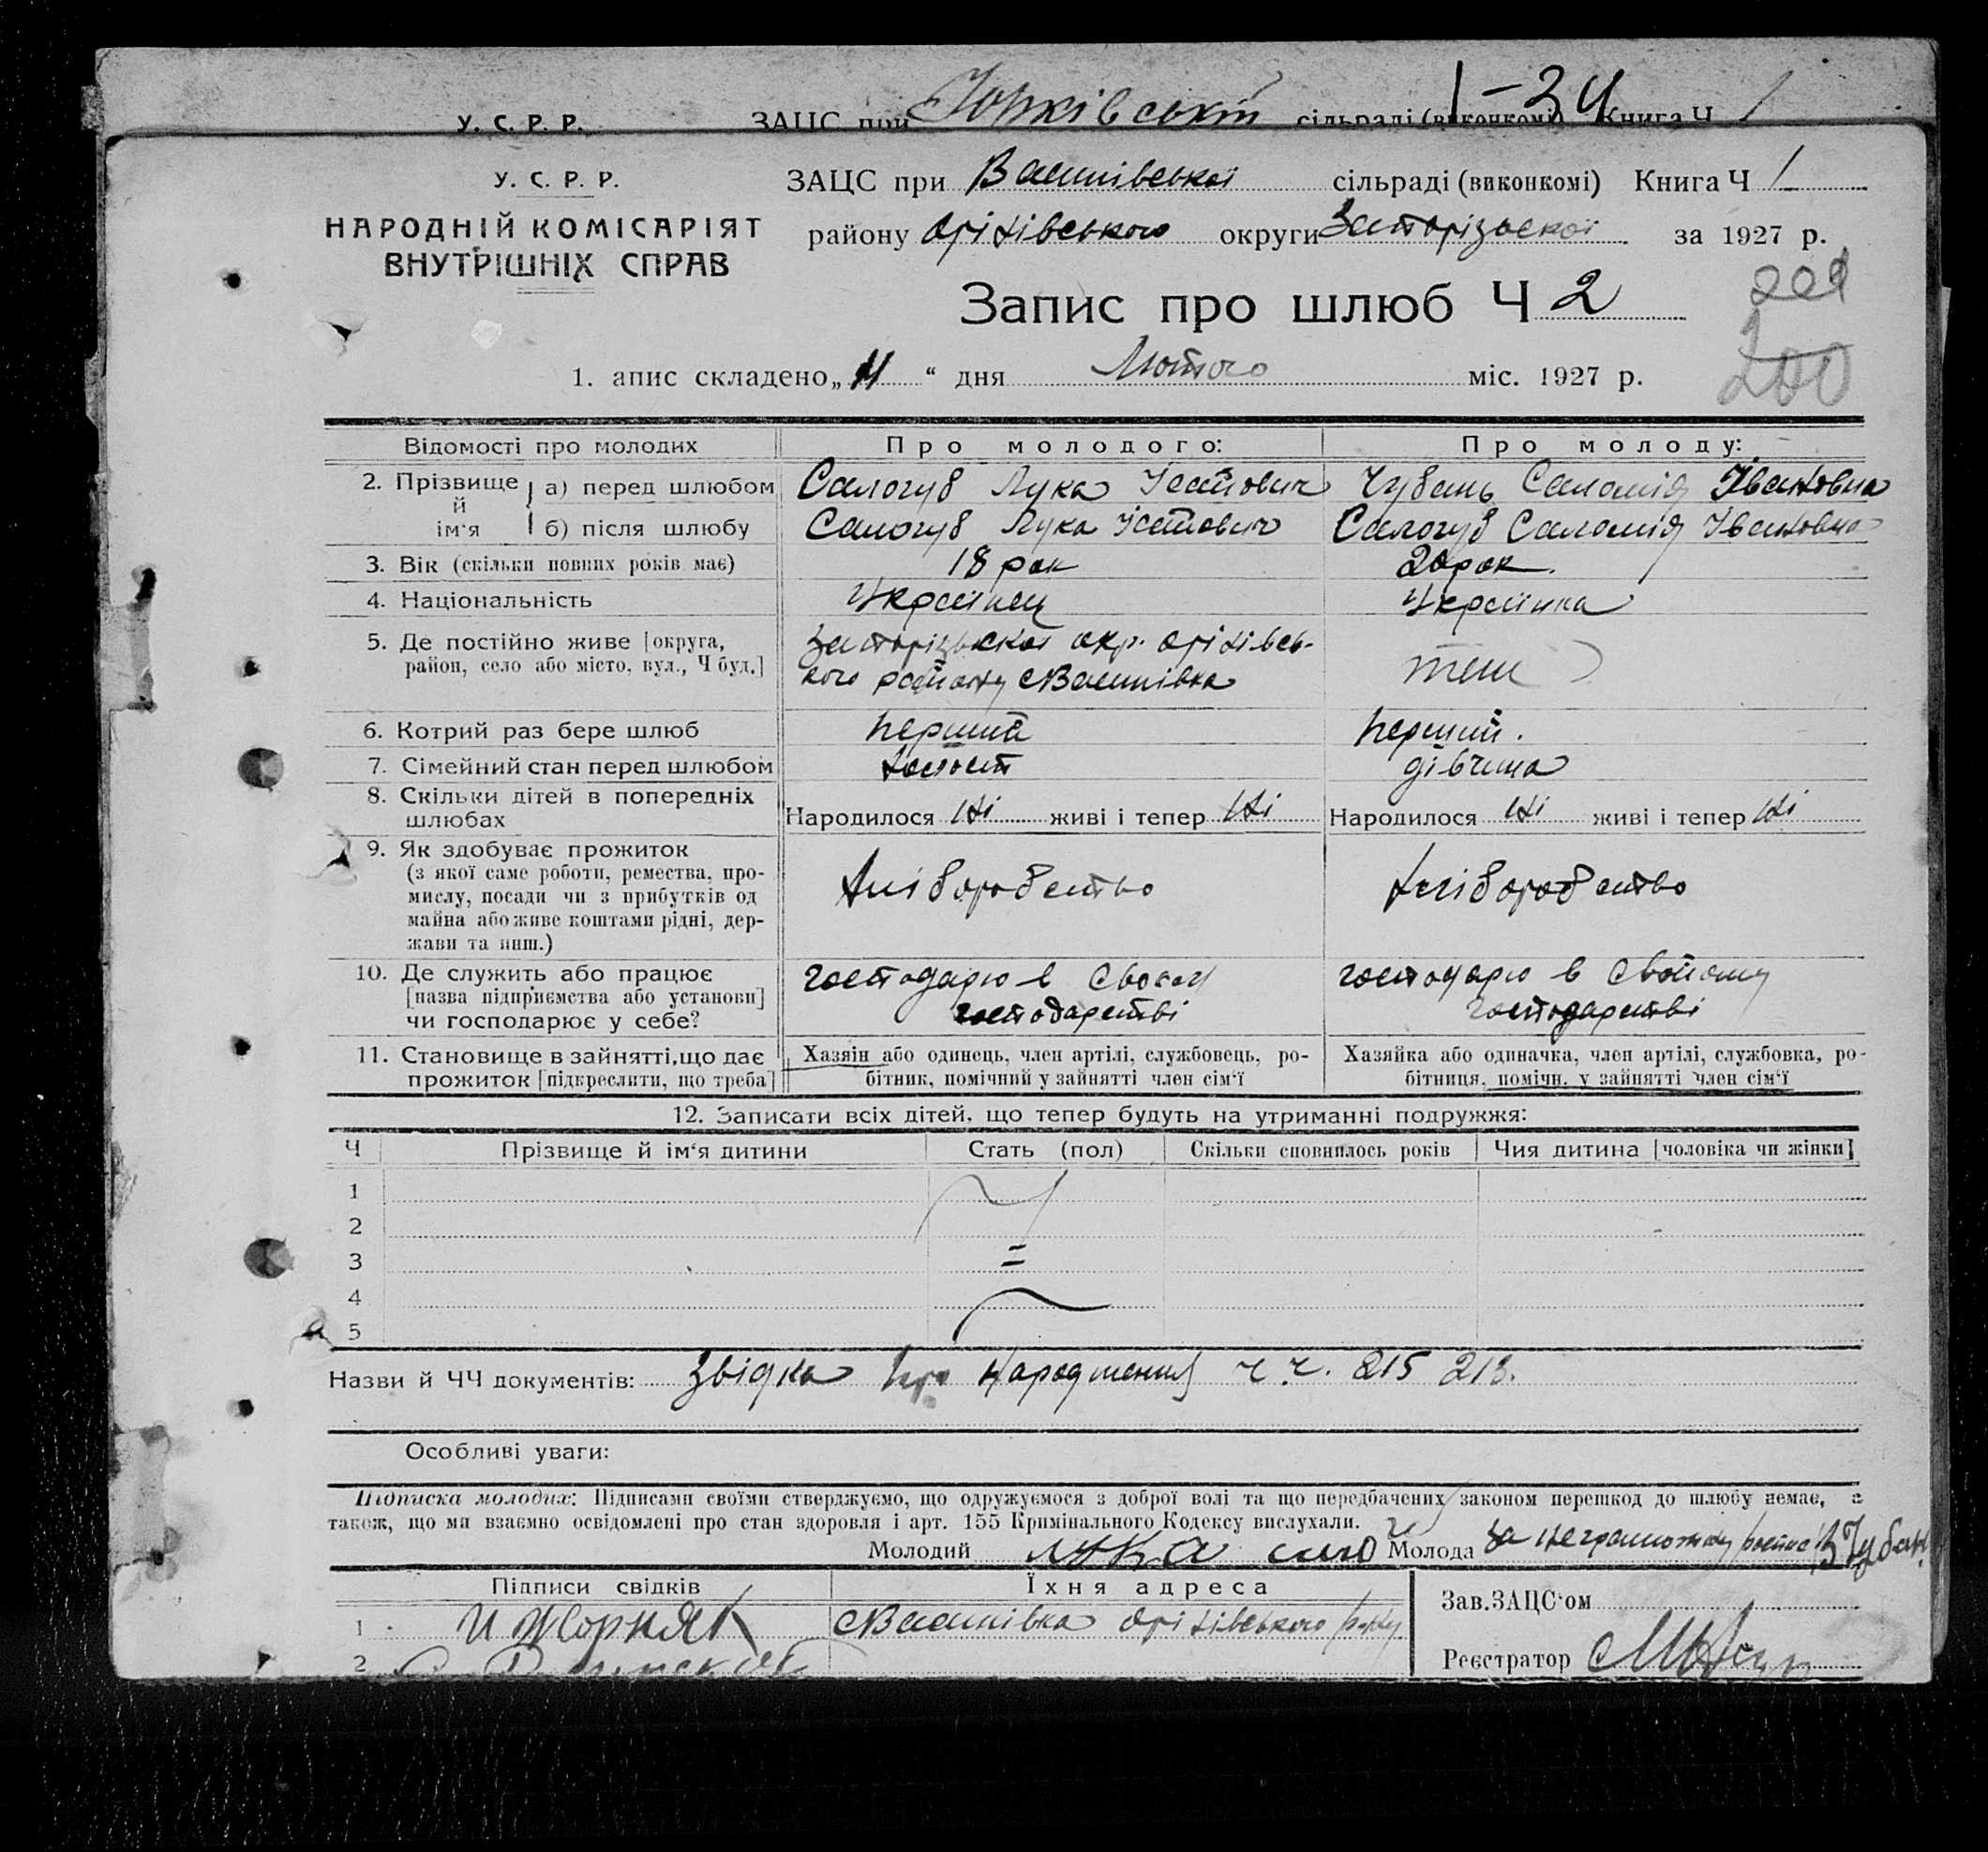 У. С. Р. Р. ЗАЦС при Юрківській сільраді (виконкомі) Книга Ч 1
1-34
У. С. Р. Р.
НАРОДНІЙ КОМІСАРІЯТ
ВНУТРІШНІХ СПРАВ
ЗАЦС при сільраді (виконкомі) Книга Ч 1
району Оріхівського округи Запорізької за 1927 р.
Запис про шлюб Ч 2
200
1. апис складено „11“ дня Лютого міс. 1927 р.
Відомості про молодих Про молодого: Про молоду:
2. Прізвище й ім'я
а) перед шлюбом Салогуб Лука Чубань Саломія Івановна
б) після шлюбу Салогуб Лука Салогуб Саломія Івановна
3. Вік (скільки повних років має) 18 рок 20 рок.
4. Національність Українец Українка
5. Де постійно живе [округа, Запорізької окр. Оріхівсь-
район, село або місто, вул., Ч буд.] кого району теш
6. Котрий раз бере шлюб перший перший.
7. Сімейний стан перед шлюбом холост дівчина
8. Скільки дітей в попередніх
шлюбах Народилося Ні живі і тепер Ні Народилося Ні живі і тепер Ні
9. Як здобуває прожиток
(з якої саме роботи, ремества, про-
мислу, посади чи з прибутків од хліборобство хліборобство
майна або живе коштами рідні, дер-
жави та инш.)
10. Де служить або працює господарю в господарю в свойому
[назва підприємства або установи] господарстві господарстві
чи господарює у себе?
11. Становище в зайнятті, що дає Хазяїн або одинець, член артілі, службовець, ро- Хазяйка або одиначка, член артілі, службовка, ро-
прожиток [підкреслити, що треба] бітник, помічний у зайнятті член сім'ї бітниця, помічн. у зайнятті член сім'ї
12. Записати всіх дітей, що тепер будуть на утриманні подружжя:
Ч Прізвище й ім'я дитини Стать (пол) Скільки сповнилось років Чия дитина [чоловіка чи жінки]
1
2
3
4
5
Назви й ЧЧ документів: Звідка про народження ч.ч. 215 213.
Особливі уваги:
Підписка молодих: Підписами своїми стверджуємо, що одружуємося з доброї волі та що передбачених законом перешкод до шлюбу немає, а
також, що ми взаємно освідомлені про стан здоровля і арт. 155 Кримінального Кодексу вислухали.
Молодий Лука сало Молода за неграмотну Чубан
Підписи свідків Їхня адреса
1 И Жорняк Оріхівського
2
Зав. ЗАЦС'ом
Реєстратор